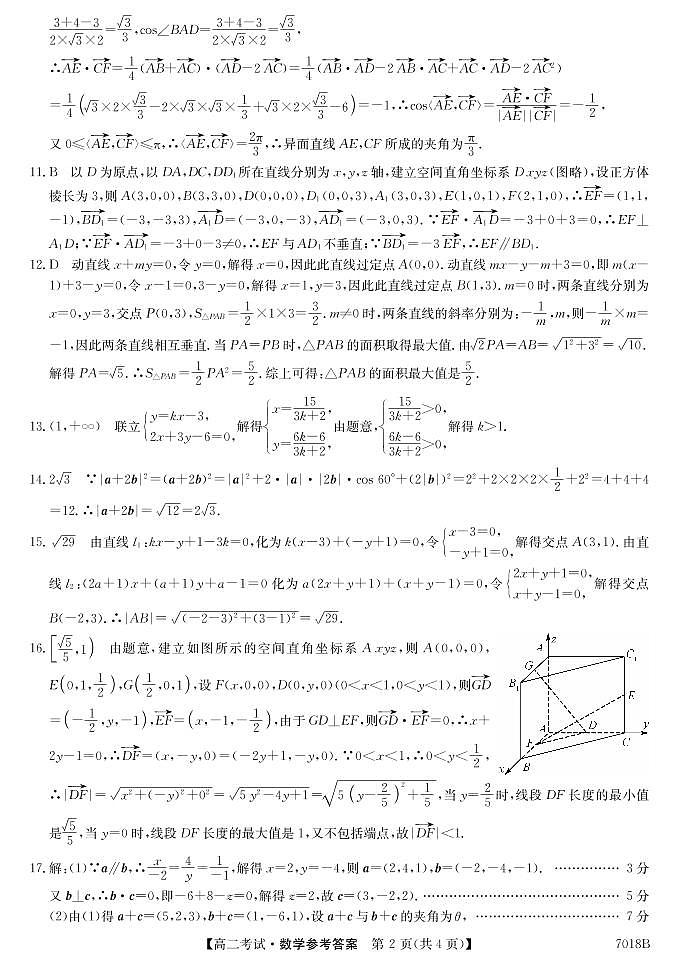 $\frac{3+4-3}{2\times\sqrt{3}\times2}=\frac{\sqrt{3}}{3}$,cos∠BAD=$\frac{3+4-3}{2\times\sqrt{3}\times2}=\frac{\sqrt{3}}{3}$,
∴$\overrightarrow{AE}\cdot\overrightarrow{CF}=\frac{1}{4}(\overrightarrow{AB}+\overrightarrow{AC})\cdot(\overrightarrow{AD}-2\overrightarrow{AC})=\frac{1}{4}(\overrightarrow{AB}\cdot\overrightarrow{AD}-2\overrightarrow{AB}\cdot\overrightarrow{AC}+\overrightarrow{AC}\cdot\overrightarrow{AD}-2\overrightarrow{AC}^2)$
$=\frac{1}{4}(\sqrt{3}\times2\times\frac{\sqrt{3}}{3}-2\times\sqrt{3}\times\sqrt{3}\times\frac{1}{3}+\sqrt{3}\times2\times\frac{\sqrt{3}}{3}-6)=-1$,∴cos⟨$\overrightarrow{AE},\overrightarrow{CF}$⟩=$\frac{\overrightarrow{AE}\cdot\overrightarrow{CF}}{|\overrightarrow{AE}||\overrightarrow{CF}|}=-\frac{1}{2}$,
又0≤⟨$\overrightarrow{AE},\overrightarrow{CF}$⟩≤π,∴⟨$\overrightarrow{AE},\overrightarrow{CF}$⟩=$\frac{2\pi}{3}$,∴异面直线AE,CF所成的夹角为$\frac{\pi}{3}$.
11.B 以D为原点,以DA,DC,DD₁所在直线分别为x,y,z轴,建立空间直角坐标系Dxyz(图略),设正方体
棱长为3,则A(3,0,0),B(3,3,0),D(0,0,0),D₁(0,0,3),A₁(3,0,3),E(1,0,1),F(2,1,0),∴$\overrightarrow{EF}$=(1,1,
-1),$\overrightarrow{BD_1}$=(-3,-3,3),$\overrightarrow{A_1D}$=(-3,0,-3),$\overrightarrow{AD_1}$=(-3,0,3).∵$\overrightarrow{EF}\cdot\overrightarrow{A_1D}$=-3+0+3=0,∴EF⊥
A₁D;∵$\overrightarrow{EF}\cdot\overrightarrow{AD_1}$=-3+0-3≠0,∴EF与AD₁不垂直;∵$\overrightarrow{BD_1}$=-3$\overrightarrow{EF}$,∴EF∥BD₁.
12.D 动直线x+my=0,令y=0,解得x=0,因此此直线过定点A(0,0).动直线mx-y-m+3=0,即m(x-
1)+3-y=0,令x-1=0,3-y=0,解得x=1,y=3,因此此直线过定点B(1,3).m=0时,两条直线分别为
x=0,y=3,交点P(0,3),$S_{△PAB}=\frac{1}{2}\times1\times3=\frac{3}{2}$.m≠0时,两条直线的斜率分别为:$-\frac{1}{m}$,m,则$-\frac{1}{m}\times m$=
-1,因此两条直线相互垂直.当PA=PB时,△PAB的面积取得最大值.由$\sqrt{2}PA=AB=\sqrt{1^2+3^2}=\sqrt{10}$.
解得PA=$\sqrt{5}$.∴$S_{△PAB}=\frac{1}{2}PA^2=\frac{5}{2}$.综上可得:△PAB的面积最大值是$\frac{5}{2}$.
13.(1,+∞) 联立$\begin{cases}y=kx-3,\\2x+3y-6=0,\end{cases}$解得$\begin{cases}x=\frac{15}{3k+2},\\y=\frac{6k-6}{3k+2},\end{cases}$由题意,$\begin{cases}\frac{15}{3k+2}>0,\\\frac{6k-6}{3k+2}>0,\end{cases}$解得k>1.
14.2$\sqrt{3}$ ∵|a+2b|²=(a+2b)²=|a|²+2·|a|·|2b|·cos 60°+(2|b|)²=2²+2×2×2×$\frac{1}{2}$+2²=4+4+4
=12.∴|a+2b|=$\sqrt{12}$=2$\sqrt{3}$.
15.$\sqrt{29}$ 由直线l₁:kx-y+1-3k=0,化为k(x-3)+(-y+1)=0,令$\begin{cases}x-3=0,\\-y+1=0,\end{cases}$解得交点A(3,1).由直
线l₂:(2a+1)x+(a+1)y+a-1=0化为a(2x+y+1)+(x+y-1)=0,令$\begin{cases}2x+y+1=0,\\x+y-1=0,\end{cases}$解得交点
B(-2,3).∴|AB|=$\sqrt{(-2-3)^2+(3-1)^2}=\sqrt{29}$.
16.$[\frac{\sqrt{5}}{5},1)$ 由题意,建立如图所示的空间直角坐标系Axyz,则A(0,0,0),
E$(0,1,\frac{1}{2})$,G$(\frac{1}{2},0,1)$,设F(x,0,0),D(0,y,0)(0<x<1,0<y<1),则$\overrightarrow{GD}$
=$(-\frac{1}{2},y,-1)$,$\overrightarrow{EF}$=$(x,-1,-\frac{1}{2})$,由于GD⊥EF,则$\overrightarrow{GD}\cdot\overrightarrow{EF}$=0,∴x+
2y-1=0,∴$\overrightarrow{DF}$=(x,-y,0)=(-2y+1,-y,0).∵0<x<1,∴0<y<$\frac{1}{2}$,
∴|$\overrightarrow{DF}$|=$\sqrt{x^2+(-y)^2+0^2}=\sqrt{5y^2-4y+1}=\sqrt{5(y-\frac{2}{5})^2+\frac{1}{5}}$,当y=$\frac{2}{5}$时,线段DF长度的最小值
是$\frac{\sqrt{5}}{5}$,当y=0时,线段DF长度的最大值是1,又不包括端点,故|$\overrightarrow{DF}$|<1.
z
A₁
C₁
G
B₁
E
A
D
C
y
F
B
x
17.解:(1)∵a∥b,∴$\frac{x}{-2}=\frac{4}{y}=\frac{1}{-1}$,解得x=2,y=-4,则a=(2,4,1),b=(-2,-4,-1). ……………3分
又b⊥c,∴b·c=0,即-6+8-z=0,解得z=2,故c=(3,-2,2). ……………5分
(2)由(1)得a+c=(5,2,3),b+c=(1,-6,1),设a+c与b+c的夹角为θ, ……………7分
【高二考试·数学参考答案 第2页(共4页)】
7018B